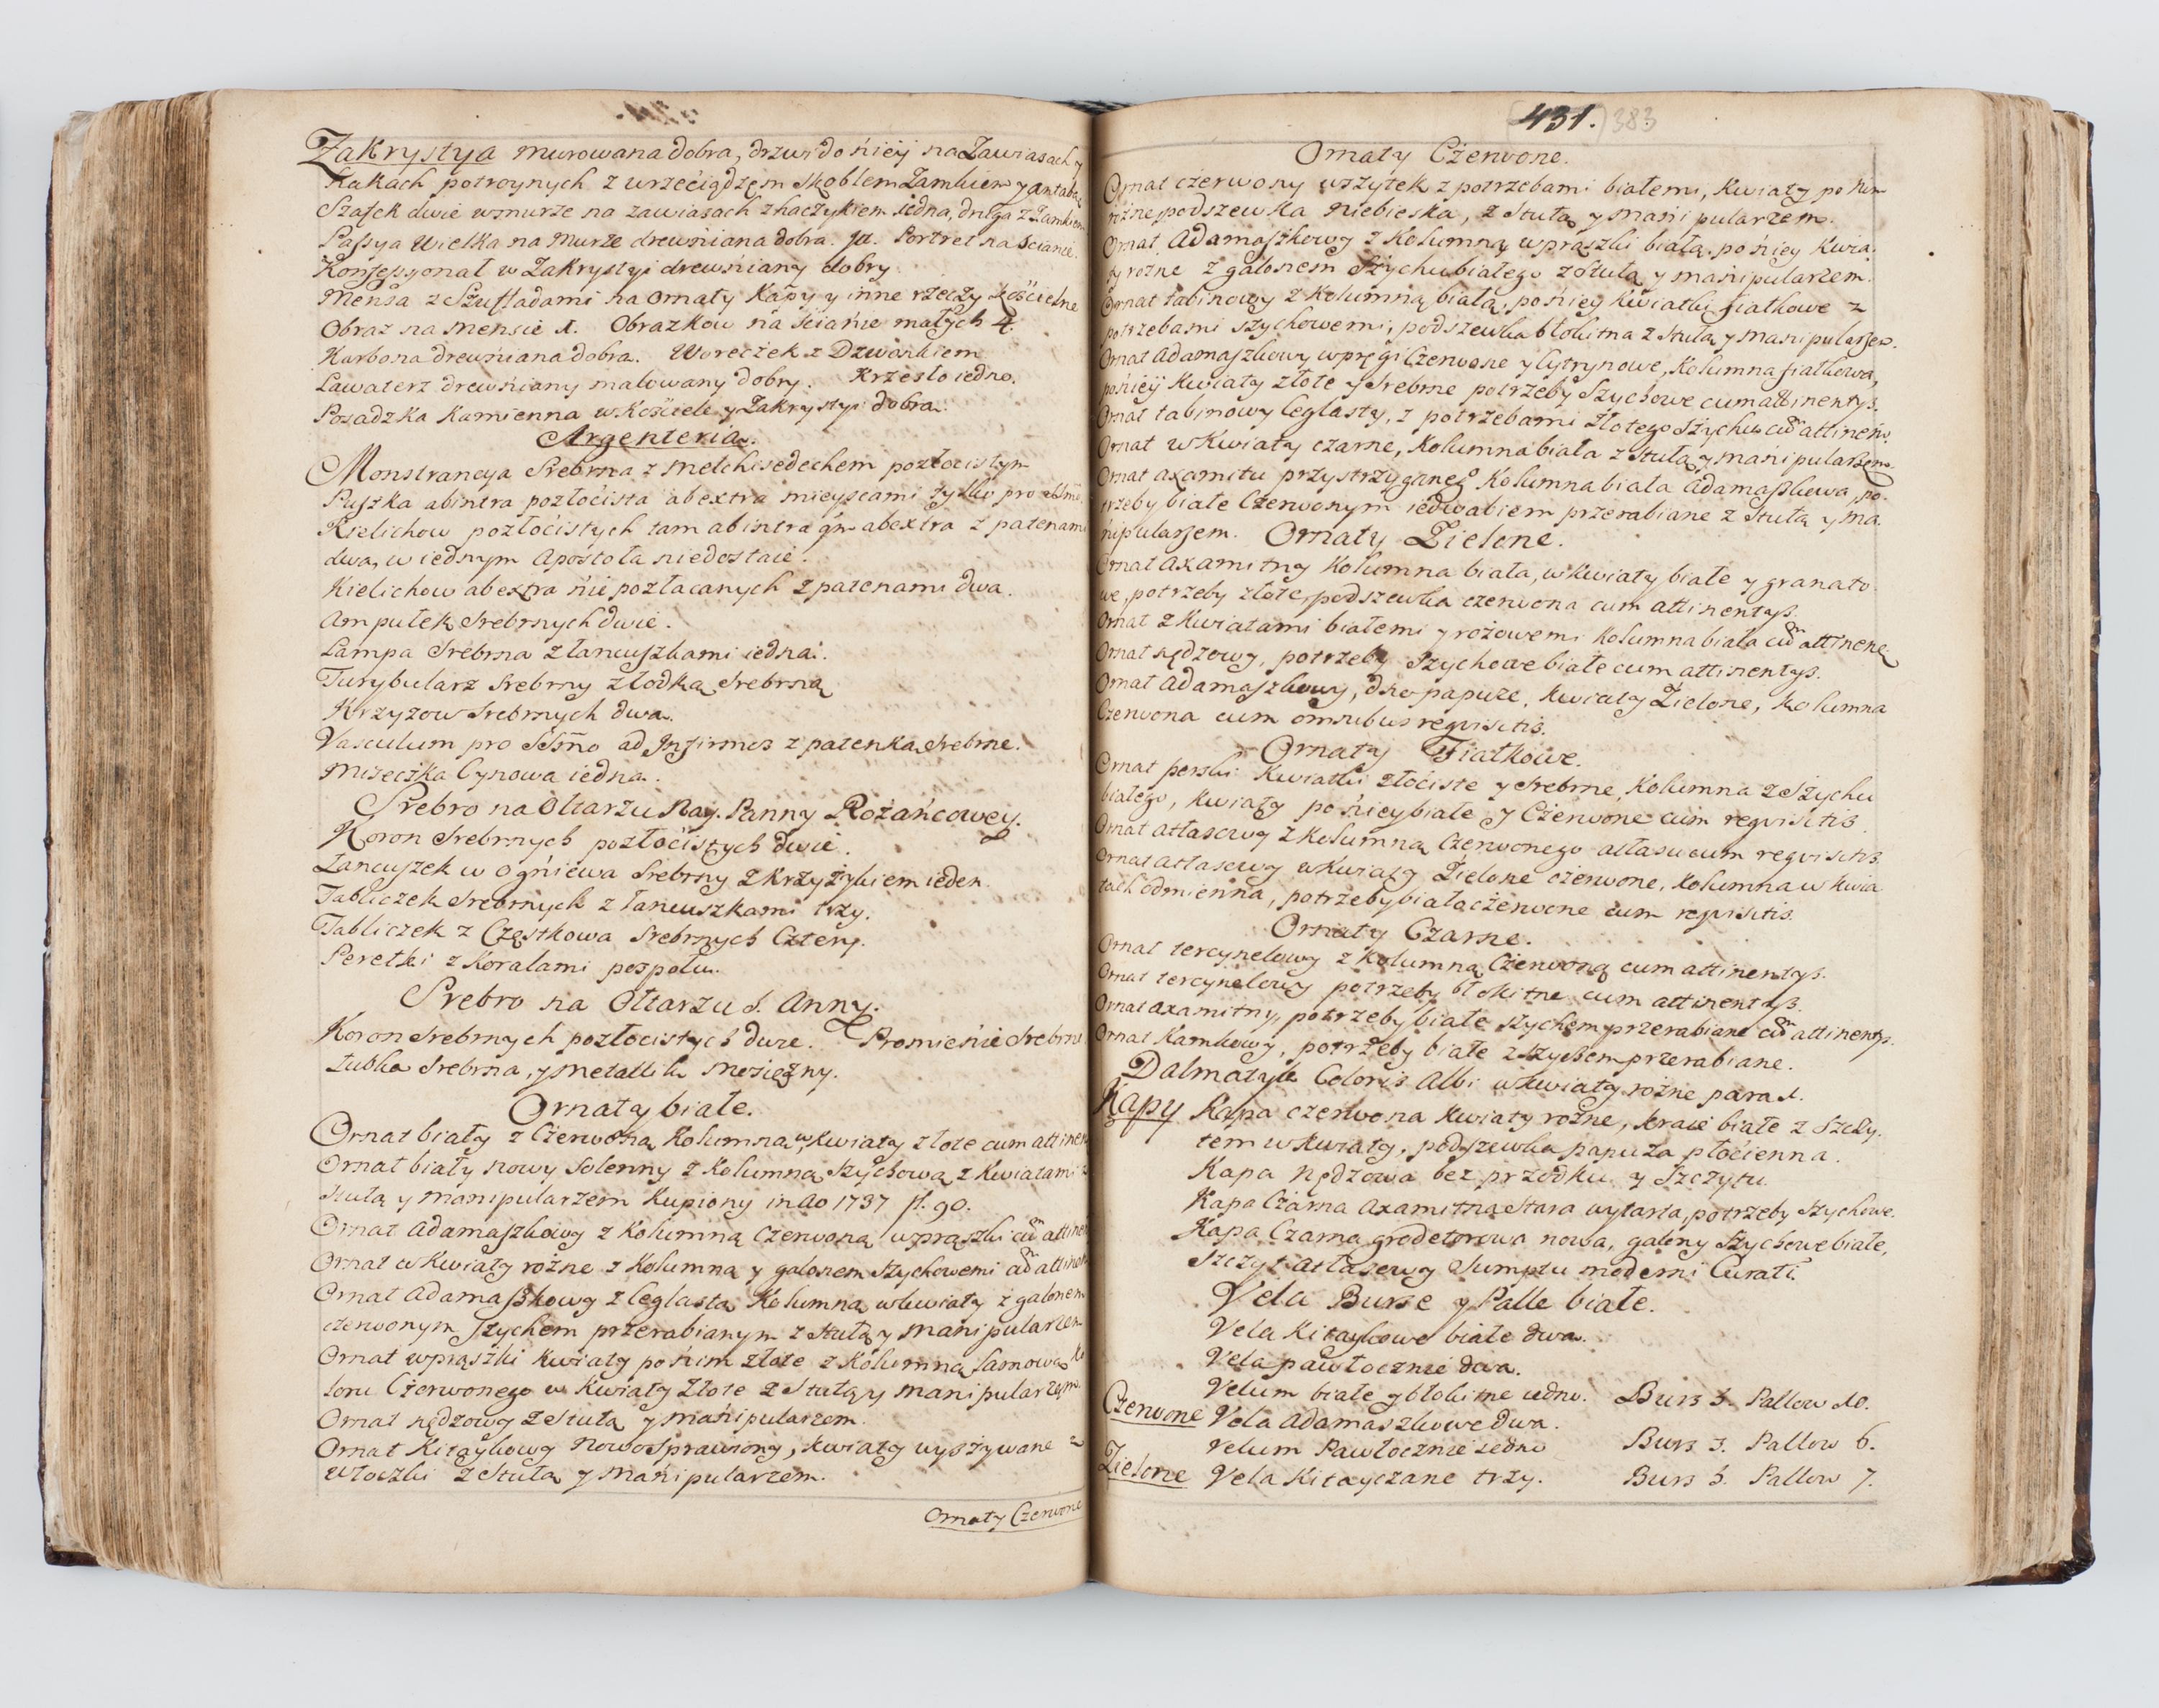 Zakrystya murowana dobra, drzwi do niey na Zawiasach y
Hakach potroynych z wrzeciądzem Skoblem Zamkiem y antabą
Szafek dwie w murze na zawiasach z haczykiem iedna, druga z Zamkiem
Passya Wielka na Murze drewniana dobra. Portret na Scianie.
Konfessyonał w Zakrystyi drewniany dobry
Mensa z Szufladami na Ornaty Kapy y inne rzeczy Kościelne
Obraz na Mensie 1. Obrazkow na ścianie małych 4.
Karbona drewniana dobra. Woreczek z Dzwonkiem
Lawaterz drewniany malowany dobry. Krzesło iedno.
Posadzka Kamienna w Kościele y Zakrystyi dobra.
Argenteria.
Monstrancya Srebrna z Melchisedechem pozłocistym
Puszka abintra pozłocista abextra mieyscami tylko pro
Kielichow pozłocistych tam abintra qm abextra z patenami
dwa, w iednym Apostoła niedostaie.
Kielichow abextra nie pozłacanych z patenami dwa.
Ampułek Srebrnych dwie.
Lampa Srebrna z łancuszkami iedna.
Turybularz Srebrny z łodką Srebrną
Krzyzow Srebrnych dwa.
Vasculum pro SSmo ad Infirmos z patenką Srebrne.
Miseczka Cynowa iedna.
Srebro na Ołtarzu Nay. Panny Rożańcowey.
Koron Srebrnych pozłocistych dwie.
Łancuszek w ogniewa Srebrny z Krzyżykiem ieden.
Tabliczek Srebrnych z łancuszkami trzy.
Tabliczek z Cząstkowa Srebrnych Cztery.
Perełki z Koralami pospołu.
Srebro na Ołtarzu S. Anny.
Koron Srebrnych pozłocistych dwie. Promienie Srebrne
Łubka Srebrna, y metallik Mosiężny.
Ornaty białe.
Ornat biały z Czerwoną Kolumną, w Kwiaty złote cum attinen
Ornat biały nowy Solenny z Kolumną Szychową z Kwiatami z
Stułą y Manipularzem Kupiony in Ao 1737 fl. 90.
Ornat Adamaszkowy z Kolumną Czerwoną w prąszki cum attinen
Ornat w Kwiaty rożne z Kolumną y galonem Szychowemi cum attinen
Ornat Adamaszkowy z Ceglastą Kolumną w Kwiaty z galonem
czerwonym Szychem przerabianym z Stułą y Manipularzem
Ornat w prążki Kwiaty po nim złote z Kolumną Lamową ko
loru Czerwonego w Kwiaty Złote z Stułą y Manipularzem.
Ornat nędzowy z Stułą y Manipularzem.
Ornat Kitaykowy Nowo Sprawiony, kwiaty wyszywane z
włoczki z Stułą y Manipularzem.
Ornaty Czerwone
431. 383
Ornaty Czerwone.
Ornat czerwony wszytek z potrzebami białemi, Kwiaty po nim
rożne podszewka Niebieska, z Stułą y Manipularzem.
Ornat Adamaszkowy z Kolumną w prąszki białą, po niey Kwia
ty rożne z galonem Szychu białego z Stułą y Manipularzem.
Ornat tabinowy z Kolumną białą, po niey Kwiatki fiałkowe z
potrzebami szychowemi, podszewka błokitna z Stułą y Manipularzem.
Ornat Adamaszkowy w pręgi Czerwone y Cytrynowe, Kolumna fiałkowa,
po niey Kwiaty złote y Srebrne potrzeby Szychowe cum attinentys.
Ornat tabinowy Ceglasty, z potrzebami Złotego Szychu cum attinen.
Ornat w Kwiaty czarne, Kolumna biała z Stułą y Manipularzem.
Ornat axamitu przystrzyganego Kolumna biała Adamaszkowa, po
trzeby białe Czerwonym iedwabiem przerabiane z Stułą y Ma
nipularzem. Ornaty Zielone.
Ornat Axamitny Kolumna biała, w Kwiaty białe y granato
we, potrzeby złote, podszewka czerwona cum attinentys.
Ornat z Kwiatami białemi y rożowemi Kolumna biała cum attinen
Ornat nędzowy, potrzeby Szychowe białe cum attinentys.
Ornat Adamaszkowy, dno papuze, Kwiaty Zielone, Kolumna
Czerwona cum omnibus reqvisitis.
Ornaty Fiałkowe.
Ornat perski Kwiatki złociste y Srebrne, Kolumna z Szychu
białego, Kwiaty po niey białe y Czerwone cum reqvisitis.
Ornat Atłasowy z Kolumną Czerwonego atłasu cum reqvisitis.
Ornat Atłasowy w Kwiaty Zielone czerwone, Kolumna w Kwia
tach odmienna, potrzeby białoczerwone cum reqvisitis.
Ornaty Czarne.
Ornat tercynelowy z Kolumną Czerwoną cum attinentys.
Ornat tercynelowy potrzeby błokitne cum attinentys.
Ornat Axamitny, potrzeby białe szychem przerabiane cum attinentys.
Ornat Kamkowy, potrzeby białe z szychem przerabiane.
Dalmatyk Coloris Albi w Kwiaty rożne para 1.
Kapy Kapa czerwona Kwiaty rożne, kraie białe z Szczy
tem w Kwiaty, podszewka papuża płócienna.
Kapa Nędzowa bez przodku y Szczytu
Kapa Czarna Axamitna Stara wytarta, potrzeby Szychowe.
Kapa Czarna grodetorowa nowa, galony Szychowe białe,
Szczyt Atłasowy Sumptu moderni Curati.
Vela Burse y Palle białe.
Vela Kitaykowe białe dwa.
Vela pawłocznie dwa.
Velum białe y błokitne iedno. Burs 3. Pallow 10.
Czerwone Vela Adamaszkowe dwa.
Velum Pawłocznie iedno Burs 3. Pallow 6.
Zielone Vela Kitayczane trzy. Burs 3. Pallow 7.